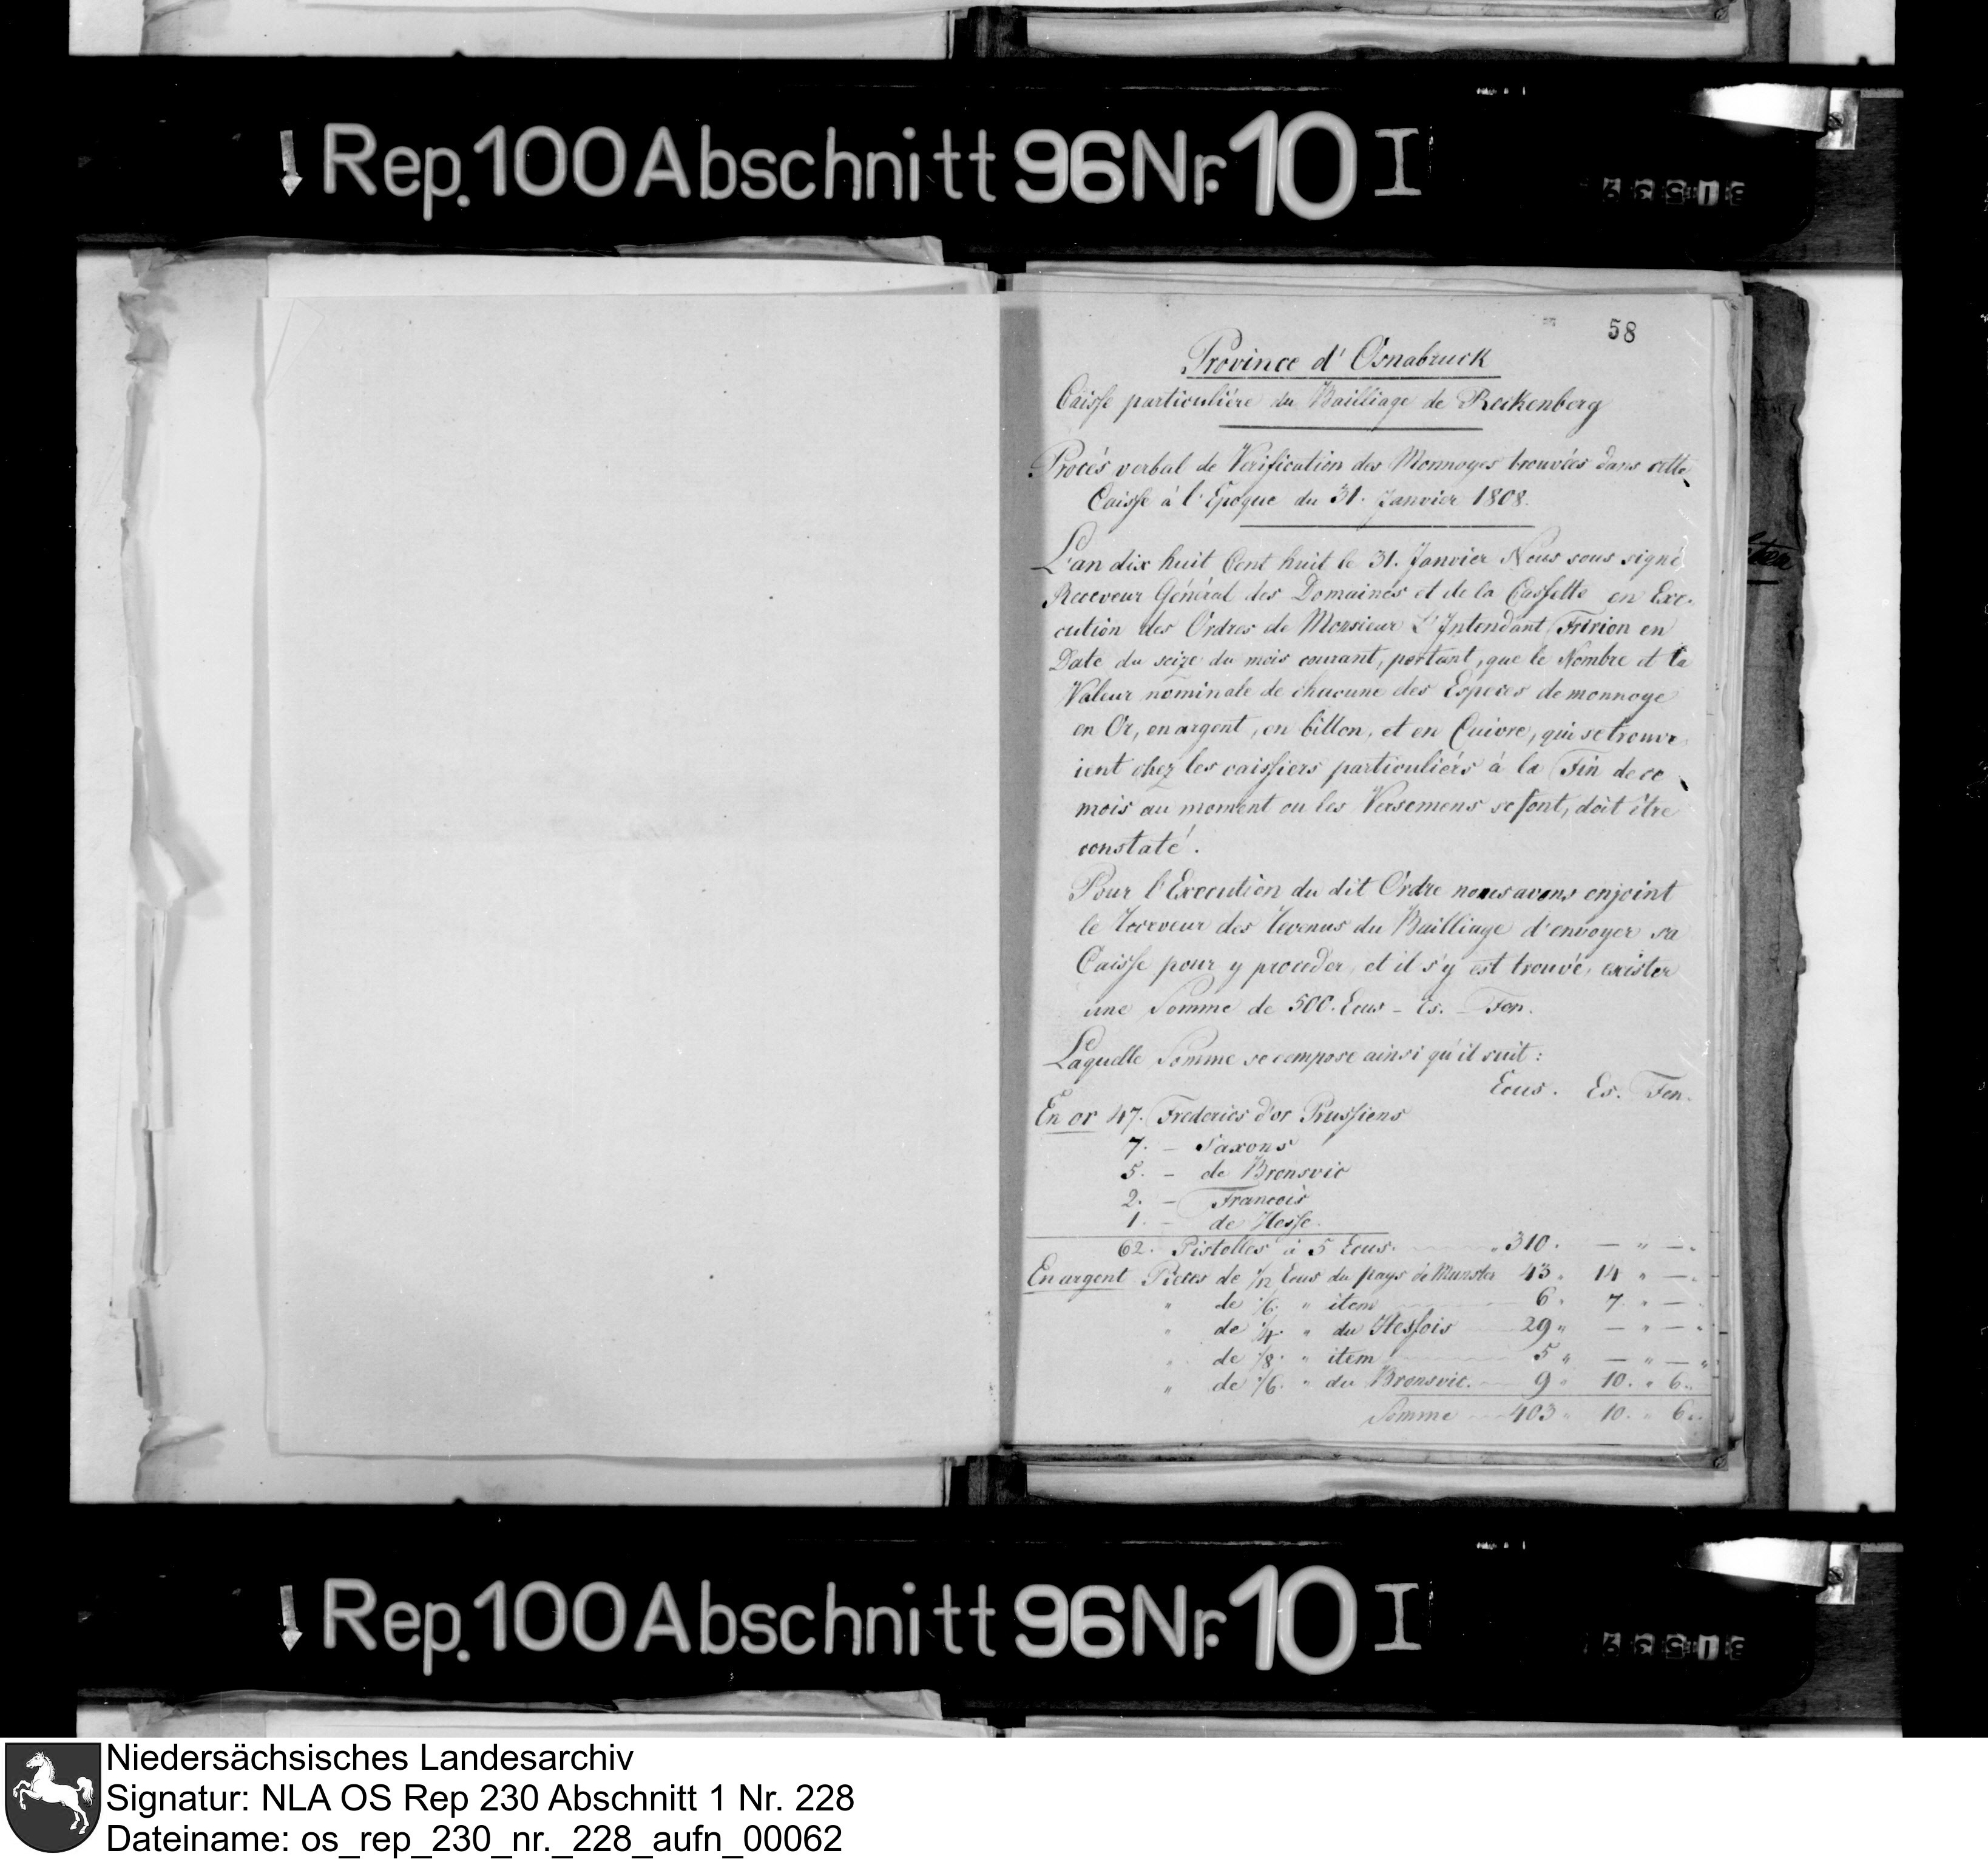 Rep. 100 Abschnitt 96 Nr. 10 I
58
Province d'Osnabruck
Caisse particuliére du Bailliage de Reckenberg
Procés verbal de Verification des Monnoyes trouvées dans cette
Caisse à l'Epoque du 31. Janvier 1808.
L'an dix huit Cent huit le 31. Janvier Nous sous signé
Receveur Général des Domaines et de la Cassette en Exe-
cution des Ordres de Monsieur L'Intendant Fririon en
Date du seize du mois courant, portant, que le Nombre et la
Valeur nominale de chacune des Especes de monnoye
en Or, en argent, en billon, et en Cuivre, qui se trouve
ient chez les caissiers particuliérs à la Fin de ce
mois au moment ou les Versemens se font, doit être
constaté.
Pour l'Execution du dit Ordre nous avons enjoint
le Receveur des Revenus du Bailliage d'envoyer sa
Caisse pour y proceder, et il s'y est trouvé, exister
une Somme de 500. Ecus - Es. - Fen.
Laquelle Somme se compose ainsi qu'il suit:
Ecus. Es. Fen.
En or 47. Frederics d'or Prussiens
7. - Saxons
5. - de Bronsvic
2. - Francois
1. - de Hesse.
62. Pistolles à 5 Ecus. " 310. — " —.
En argent Pieces de 1/12 Ecus du pays de Munster 43 " 14 " —.
" de 1/6. " item 6. 7. " —.
" de 1/4. " du Hessois 29 " — " — "
" de 1/8. " item 5 " — " — "
" de 1/6. " du Bronsvic. 9 " 10. " 6 "
Somme 403 " 10. " 6 "
Rep. 100 Abschnitt 96 Nr. 10 I
Niedersächsisches Landesarchiv
Signatur: NLA OS Rep 230 Abschnitt 1 Nr. 228
Dateiname: os_rep_230_nr._228_aufn_00062